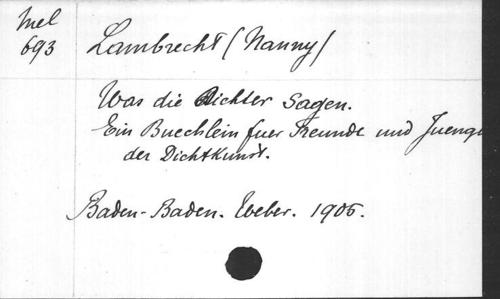 Mel
693
Lambrecht (Nanny)
Was die Dichter sagen.
Ein Buechlein fuer Freunde und Juenge
der Dichtkunst.
Baden-Baden. Weber. 1905.